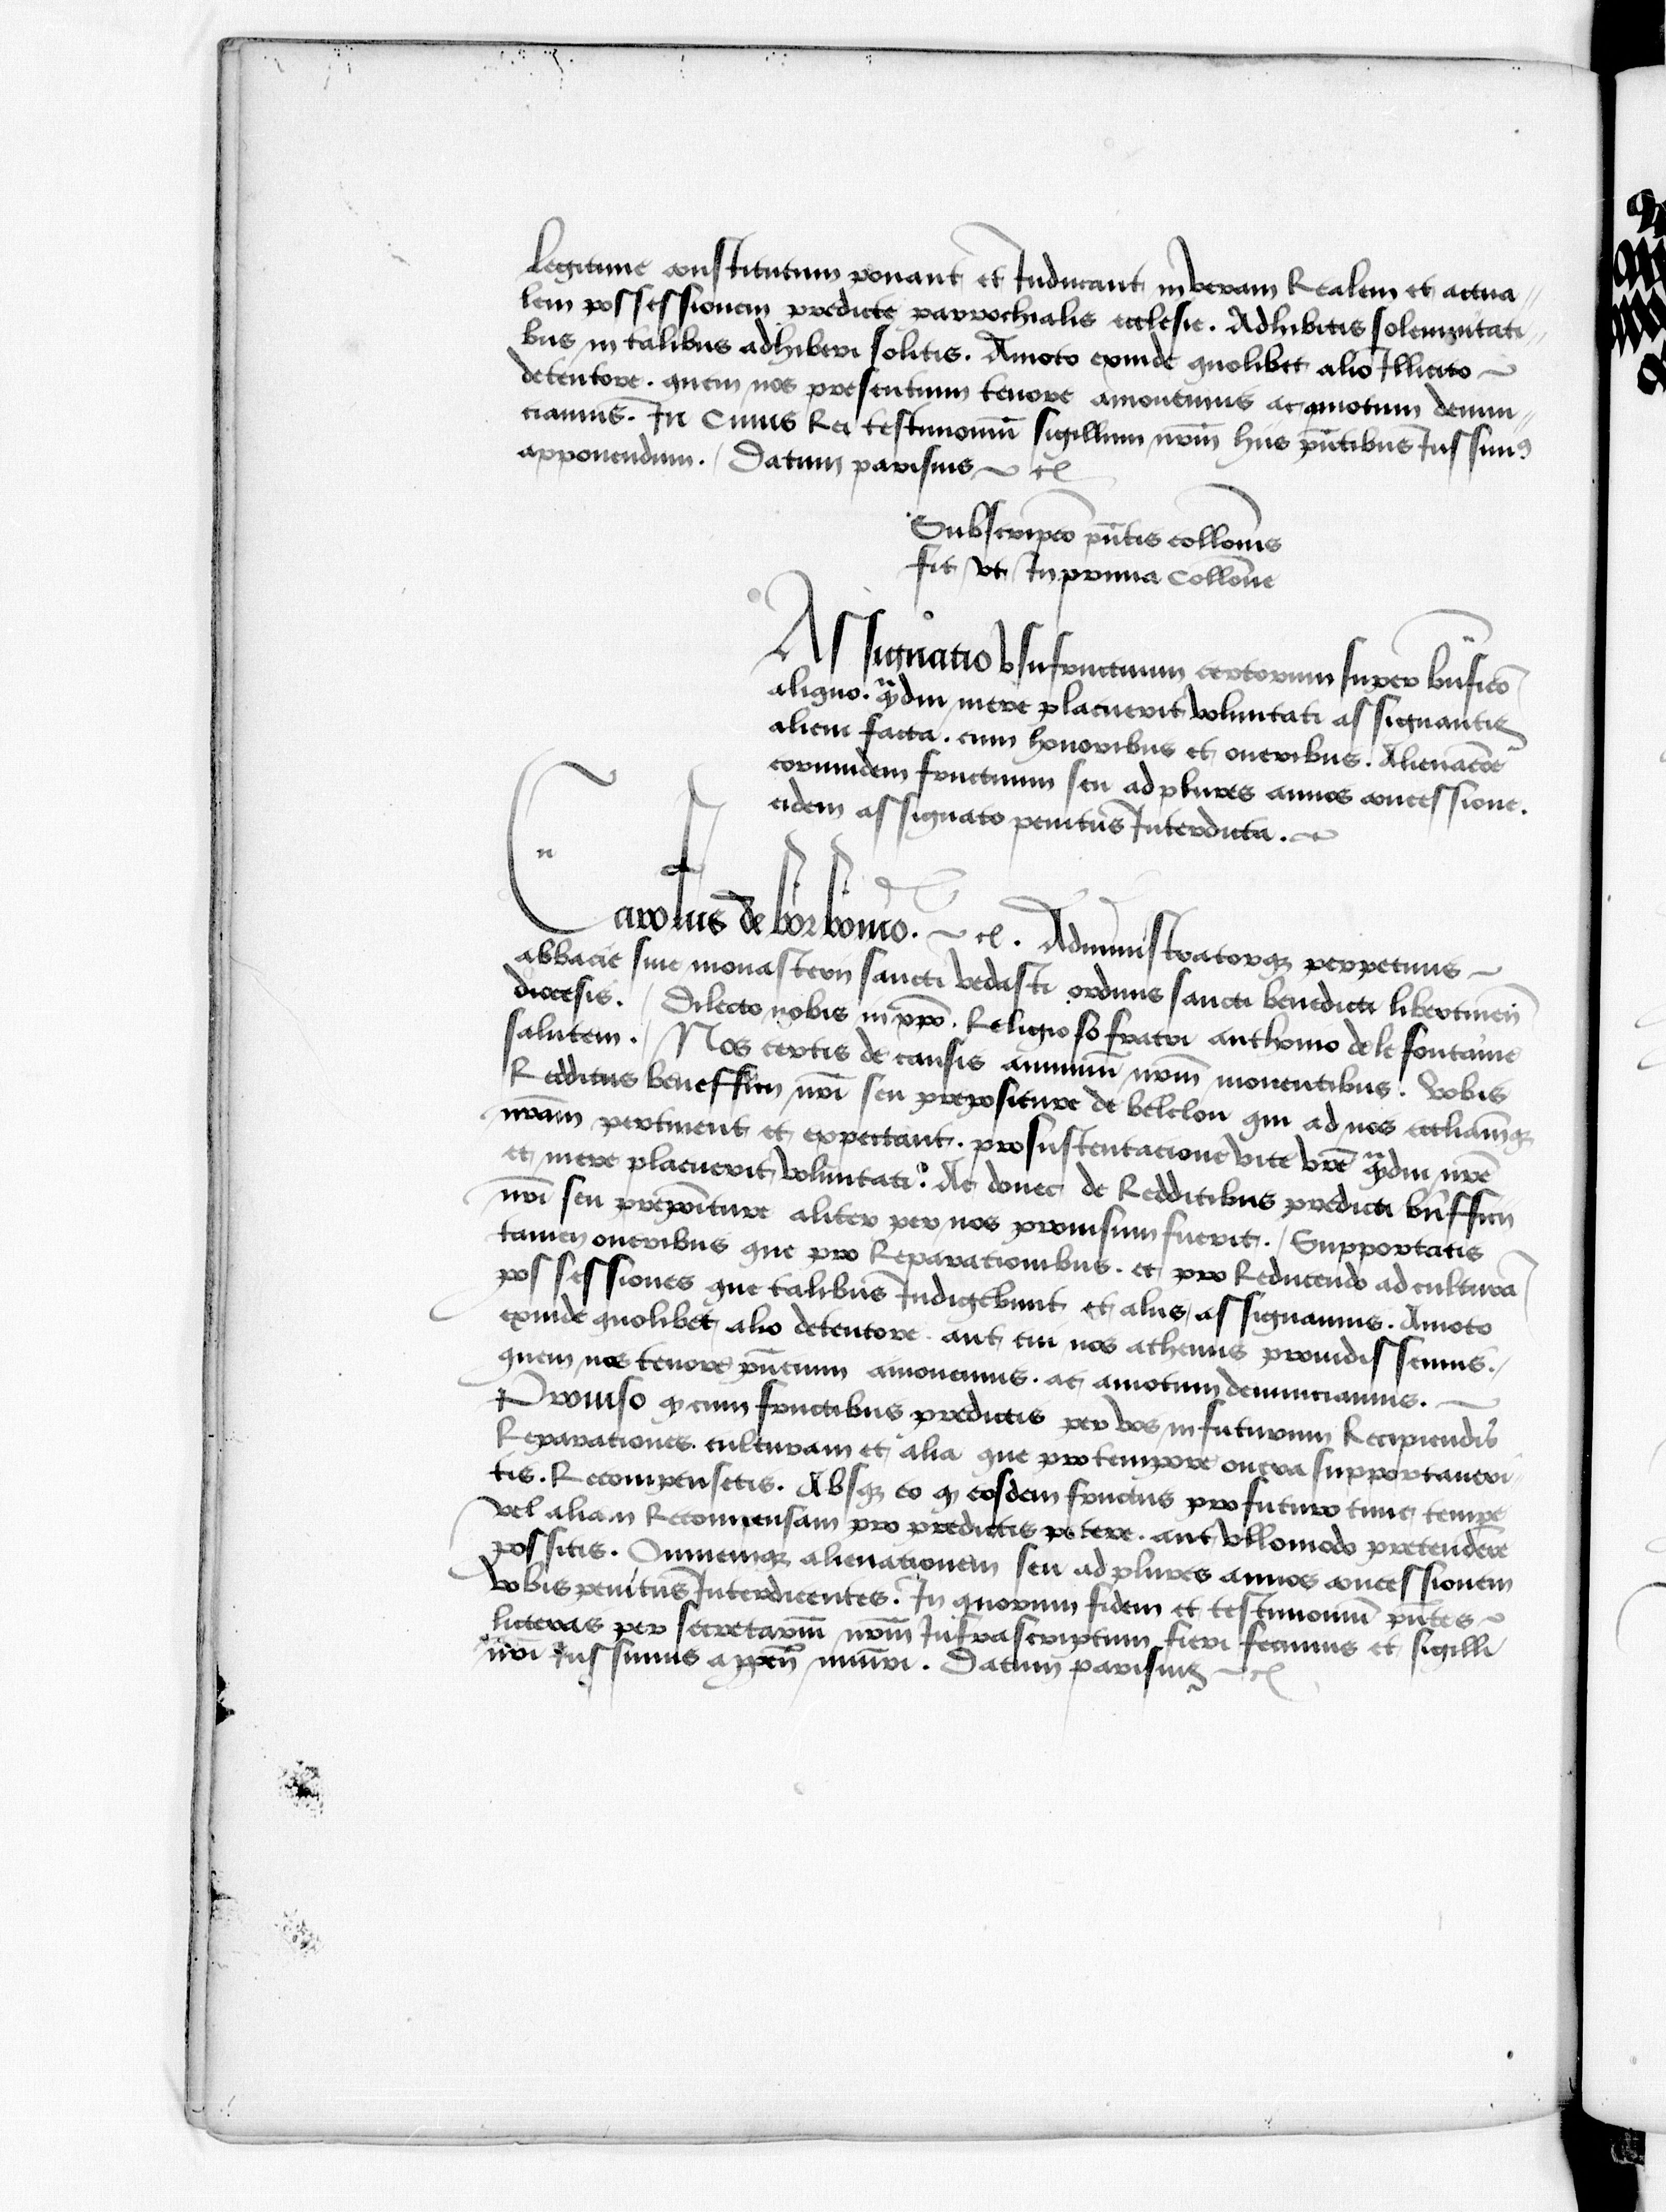 legitime constitutum ponant et Inducant in veram Realem et actua
lem possessionem predicte parrochialis ecclesie. Adhibitis solemnitati
bus in talibus adhiberi solitis. Amoto exinde quolibet alio Illicito
detentore. quem nos presentium tenore amouemus ac amotum denun
ciamus. In Cuius Rei testimoniū sigillum nr̄m hiis pn̄tibus Iussimꝰ
apponendum. Datum parisius ~ etc̄
Subscripcō pn̄tis collōnis
fit vt In prima collōne
Assignatio vsufructuum certorum super bn̄ficō
aliquo. q̄diu mere placuerit voluntati assignantis
alicui facta. cum honoribus et oneribus. Alienacōē
eorumdem fructuum seu ad plures annos concessione.
eidem assignato penitus Interdicta. ~
Carolus de borbonio. ~ etc̄. Administratorqꝫ perpetuus ~
abbacie siue monasterii sancti vedasti ordinis sancti benedicti
diocesis. Dilecto nobis in xp̄o. Religioso fratri anthonio de le fontaine
salutem. Nos certis de causis animum nr̄m mouentibus. vobis
Redditus benefficii nr̄i seu prepositure de qui ad nos eccliamqꝫ
nr̄am pertinent et expectant. pro sustentacione vite vr̄e q̄diu nr̄e
et mere placuerit voluntati. Ac donec de Redditibus predicti bn̄fficii
nr̄i seu prepōiture aliter per nos prouisum fuerit. Supportatis
tamen oneribus que pro Reparationibus. et pro Reducendo ad culturā
possessiones que talibus Indigebunt et aliis, assignamus. Amoto
exinde quolibet alio detentore. aut cui nos athenus prouidissemus.
quem nos tenore pn̄cium amouemus. ac amotum denunciamus. ~
Prouiso ꝙ cum fructibus predictis per vos in futurum Recipiendis
Reparationes. culturam et alia que pro tempore onera supportaueri
tis. Recompensetis. Absqꝫ eo ꝙ eosdem fructus pro futuro tunc tempe
vel aliam Recompensam pro predictis petere. aut vllomodo pretendere
possitis. Omnemqꝫ alienationem seu ad plures annos concessionem
vobis penitus Interdicentes. In quorum fidem et testimoniū pn̄tes ~
litteras per secretariū nr̄m Infrascriptum fieri fecimus et sigilli
nr̄i Iussimus appēn muniri. Datum parisius ~ etc̄